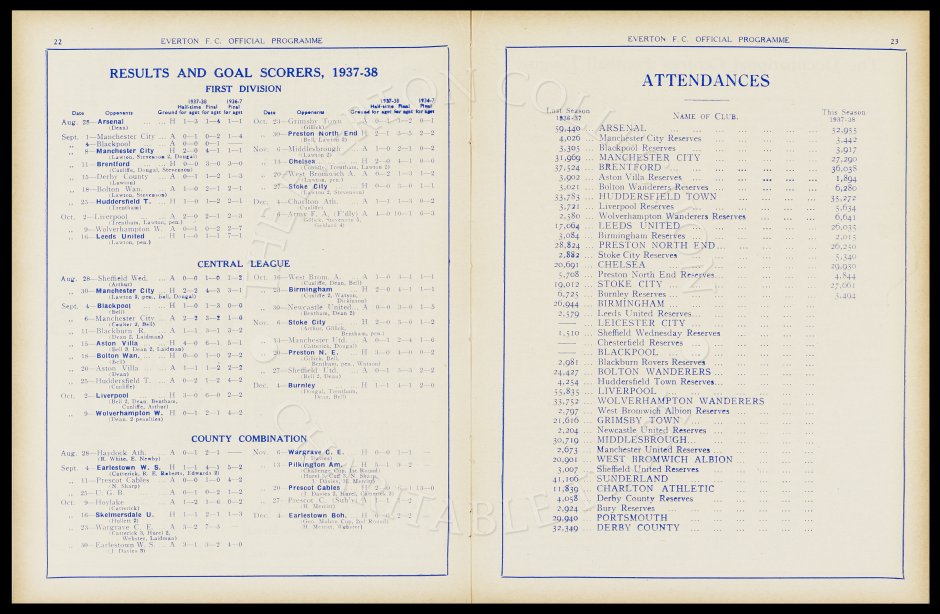 22 EVERTON F.C. OFFICIAL PROGRAMME
RESULTS AND GOAL SCORERS, 1937-38
FIRST DIVISION
1937-38 1936-7
Half-time Final Final
Date Opponents Ground for agst for agst for agst
Aug. 28—Arsenal ... H 1—3 1—4 1—1
(Dean)
Sept. 1—Manchester City ... A 0—1 0—2 1—4
„ 4—Blackpool ... A 0—0 0—1
„ 8—Manchester City ... H 2—0 4—1 1—1
(Lawton, Stevenson 2, Dougal)
„ 11—Brentford ... H 0—0 3—0 3—0
(Cunliffe, Dougal, Stevenson)
„ 15—Derby County ... A 0—1 1—2 1—3
(Lawton)
„ 18—Bolton Wan. ... A 1—0 2—1 2—1
(Lawton, Stevenson)
„ 25—Huddersfield T. ... H 1—0 1—2 2—1
(Trentham)
Oct. 2—Liverpool ... A 2—0 2—1 2—3
(Trentham, Lawton, pen.)
„ 9—Wolverhampton W. A 0—1 0—2 2—7
„ 16—Leeds United ... H 1—0 1—1 7—1
(Lawton, pen.)
1937-38 1936-7
Half-time Final Final
Date Opponents Ground for agst for agst for agst
Oct. 23—Grimsby Town ... A 0—1 1—2 0—1
(Gillick)
„ 30—Preston North End H 2—1 3—5 2—2
(Bell, Lawton 2)
Nov. 6—Middlesbrough ... A 1—0 2—1 0—2
(Lawton 2)
„ 13—Chelsea ... H 2—0 4—1 0—0
„ 20—West Bromwich A. A 0—2 1—3 1—2
(Lawton, pen.)
„ 27—Stoke City ... H 0—0 3—0 1—1
(Lawton 2, Stevenson)
Dec. 4—Charlton Ath. ... A 1—1 1—3 0—2
„ 6—Army F. A. (F'dly) A 4—0 10—1 6—3
CENTRAL LEAGUE
Aug. 28—Sheffield Wed. ... A 0—0 1—0 1—2
(Arthur)
„ 30—Manchester City ... H 2—2 4—3 3—1
(Lawton 2, pen., Bell, Dougal)
Sept. 4—Blackpool ... H 1—0 1—3 0—0
(Bell)
„ 6—Manchester City ... A 2—2 3—2 1—0
„ 11—Blackburn R. ... A 1—1 3—1 3—2
(Dean 2, Laidman)
„ 15—Aston Villa ... H 4—0 6—1 5—1
„ 18—Bolton Wan. ... H 0—0 1—0 2—2
(Bell)
„ 20—Aston Villa ... A 1—1 1—2 2—2
(Dean)
„ 25—Huddersfield T. ... A 0—2 1—2 4—2
(Cunliffe)
Oct. 2—Liverpool ... H 3—0 6—0 2—2
(Bell 2, Dean, Bentham,
Cunliffe, Arthur)
„ 9—Wolverhampton W. H 0—1 2—1 4—2
(Dean, 2 penalties)
Oct. 16—West Brom. A. ... A 1—0 3—1 1—1
(Cunliffe, Dean, Bell)
„ 23—Birmingham ... H 2—0 4—1 1—1
(Cunliffe 2, Watson,
Dickinson)
„ 30—Newcastle United ... A 0—0 3—0 1—5
(Bentham, Dean 2)
Nov. 6—Stoke City ... H 2—0 3—0 1—2
(Arthur, Gillick,
Bentham, pen.)
„ 13—Manchester Utd. ... A 0—1 2—4 1—6
(Catterick, Dougal)
„ 20—Preston N. E. ... H 4—0 4—0 0—2
(Gillick, Bell,
Bentham, pen., Watson)
„ 27—Sheffield Utd. ... A 0—1 3—3 2—2
(Bell 2, Dean)
Dec. 4—Burnley ... H 1—1 4—1 2—0
(Dougal, Trentham,
Dean, Bell)
COUNTY COMBINATION
Aug. 28—Haydock Ath. ... A 0—1 2—1 —
(R. White, E. Newby)
Sept. 4—Earlestown W. S. H 1—1 4—1 5—2
(Catterick, R. E. Roberts, Edwards 2)
„ 11—Prescot Cables ... A 0—0 1—0 4—2
(N. Sharp)
„ 25—U. G. B. ... A 0—1 0—2 1—2
Oct. 9—Hoylake ... A 1—2 1—6 0—2
(Catterick)
„ 16—Skelmersdale U. H 1—1 2—1 1—3
(Hullett 2)
„ 23—Wargrave C. E. A 3—2 7—3
(Catterick 3, Hurel 2,
Webster, Laidman)
„ 30—Earlestown W. S. ... A 3—1 3—2 4—0
(J. Davies 3)
Nov. 6—Wargrave C. E. H 0—0 1—1
(J. Davies)
„ 13—Pilkington Am.
(Challenge Cup, 1st Round)
J. Davies, H. Merritt)
„ 20—Prescot Cables
„ 27—Prescot C.
(H. Merritt)
Dec. 4—Earlestown Boh. H
(Geo. Mahon Cup, 2nd Round)
H. Merritt, Webster)
EVERTON F.C. OFFICIAL PROGRAMME 23
ATTENDANCES
Last Season NAME OF CLUB. This Season
1936-37 1937-38
59,440 ... ARSENAL ... 52,955
4,026 ... Manchester City Reserves ... 3,442
3,305 ... Blackpool Reserves ... 3,917
31,969 ... MANCHESTER CITY ... 27,290
37,524 ... BRENTFORD ... 36,038
3,902 ... Aston Villa Reserves ... 1,894
3,021 ... Bolton Wanderers Reserves ... 6,280
33,783 ... HUDDERSFIELD TOWN ... 35,272
3,721 ... Liverpool Reserves ... 5,634
2,580 ... Wolverhampton Wanderers Reserves ... 6,641
17,064 ... LEEDS UNITED ... 26,035
3,084 ... Birmingham Reserves ... 2,015
28,824 ... PRESTON NORTH END ... 26,250
2,882 ... Stoke City Reserves ... 5,340
20,691 ... CHELSEA ... 29,930
5,708 ... Preston North End Reserves ... 4,844
19,012 ... STOKE CITY ... 27,661
6,725 ... Burnley Reserves ... 3,494
26,944 ... BIRMINGHAM ...
2,579 ... Leeds United Reserves ...
— ... LEICESTER CITY ...
1,510 ... Sheffield Wednesday Reserves
— ... Chesterfield Reserves ...
— ... BLACKPOOL ...
2,981 ... Blackburn Rovers Reserves ...
24,427 ... BOLTON WANDERERS ...
4,254 ... Huddersfield Town Reserves ...
55,835 ... LIVERPOOL ...
33,752 ... WOLVERHAMPTON WANDERERS
2,797 ... West Bromwich Albion Reserves
21,616 ... GRIMSBY TOWN ...
2,204 ... Newcastle United Reserves ...
30,719 ... MIDDLESBROUGH ...
2,673 ... Manchester United Reserves ...
20,901 ... WEST BROMWICH ALBION ...
3,007 ... Sheffield United Reserves ...
41,166 ... SUNDERLAND ...
11,839 ... CHARLTON ATHLETIC ...
4,058 ... Derby County Reserves ...
2,924 ... Bury Reserves ...
29,940 ... PORTSMOUTH ...
32,349 ... DERBY COUNTY ...